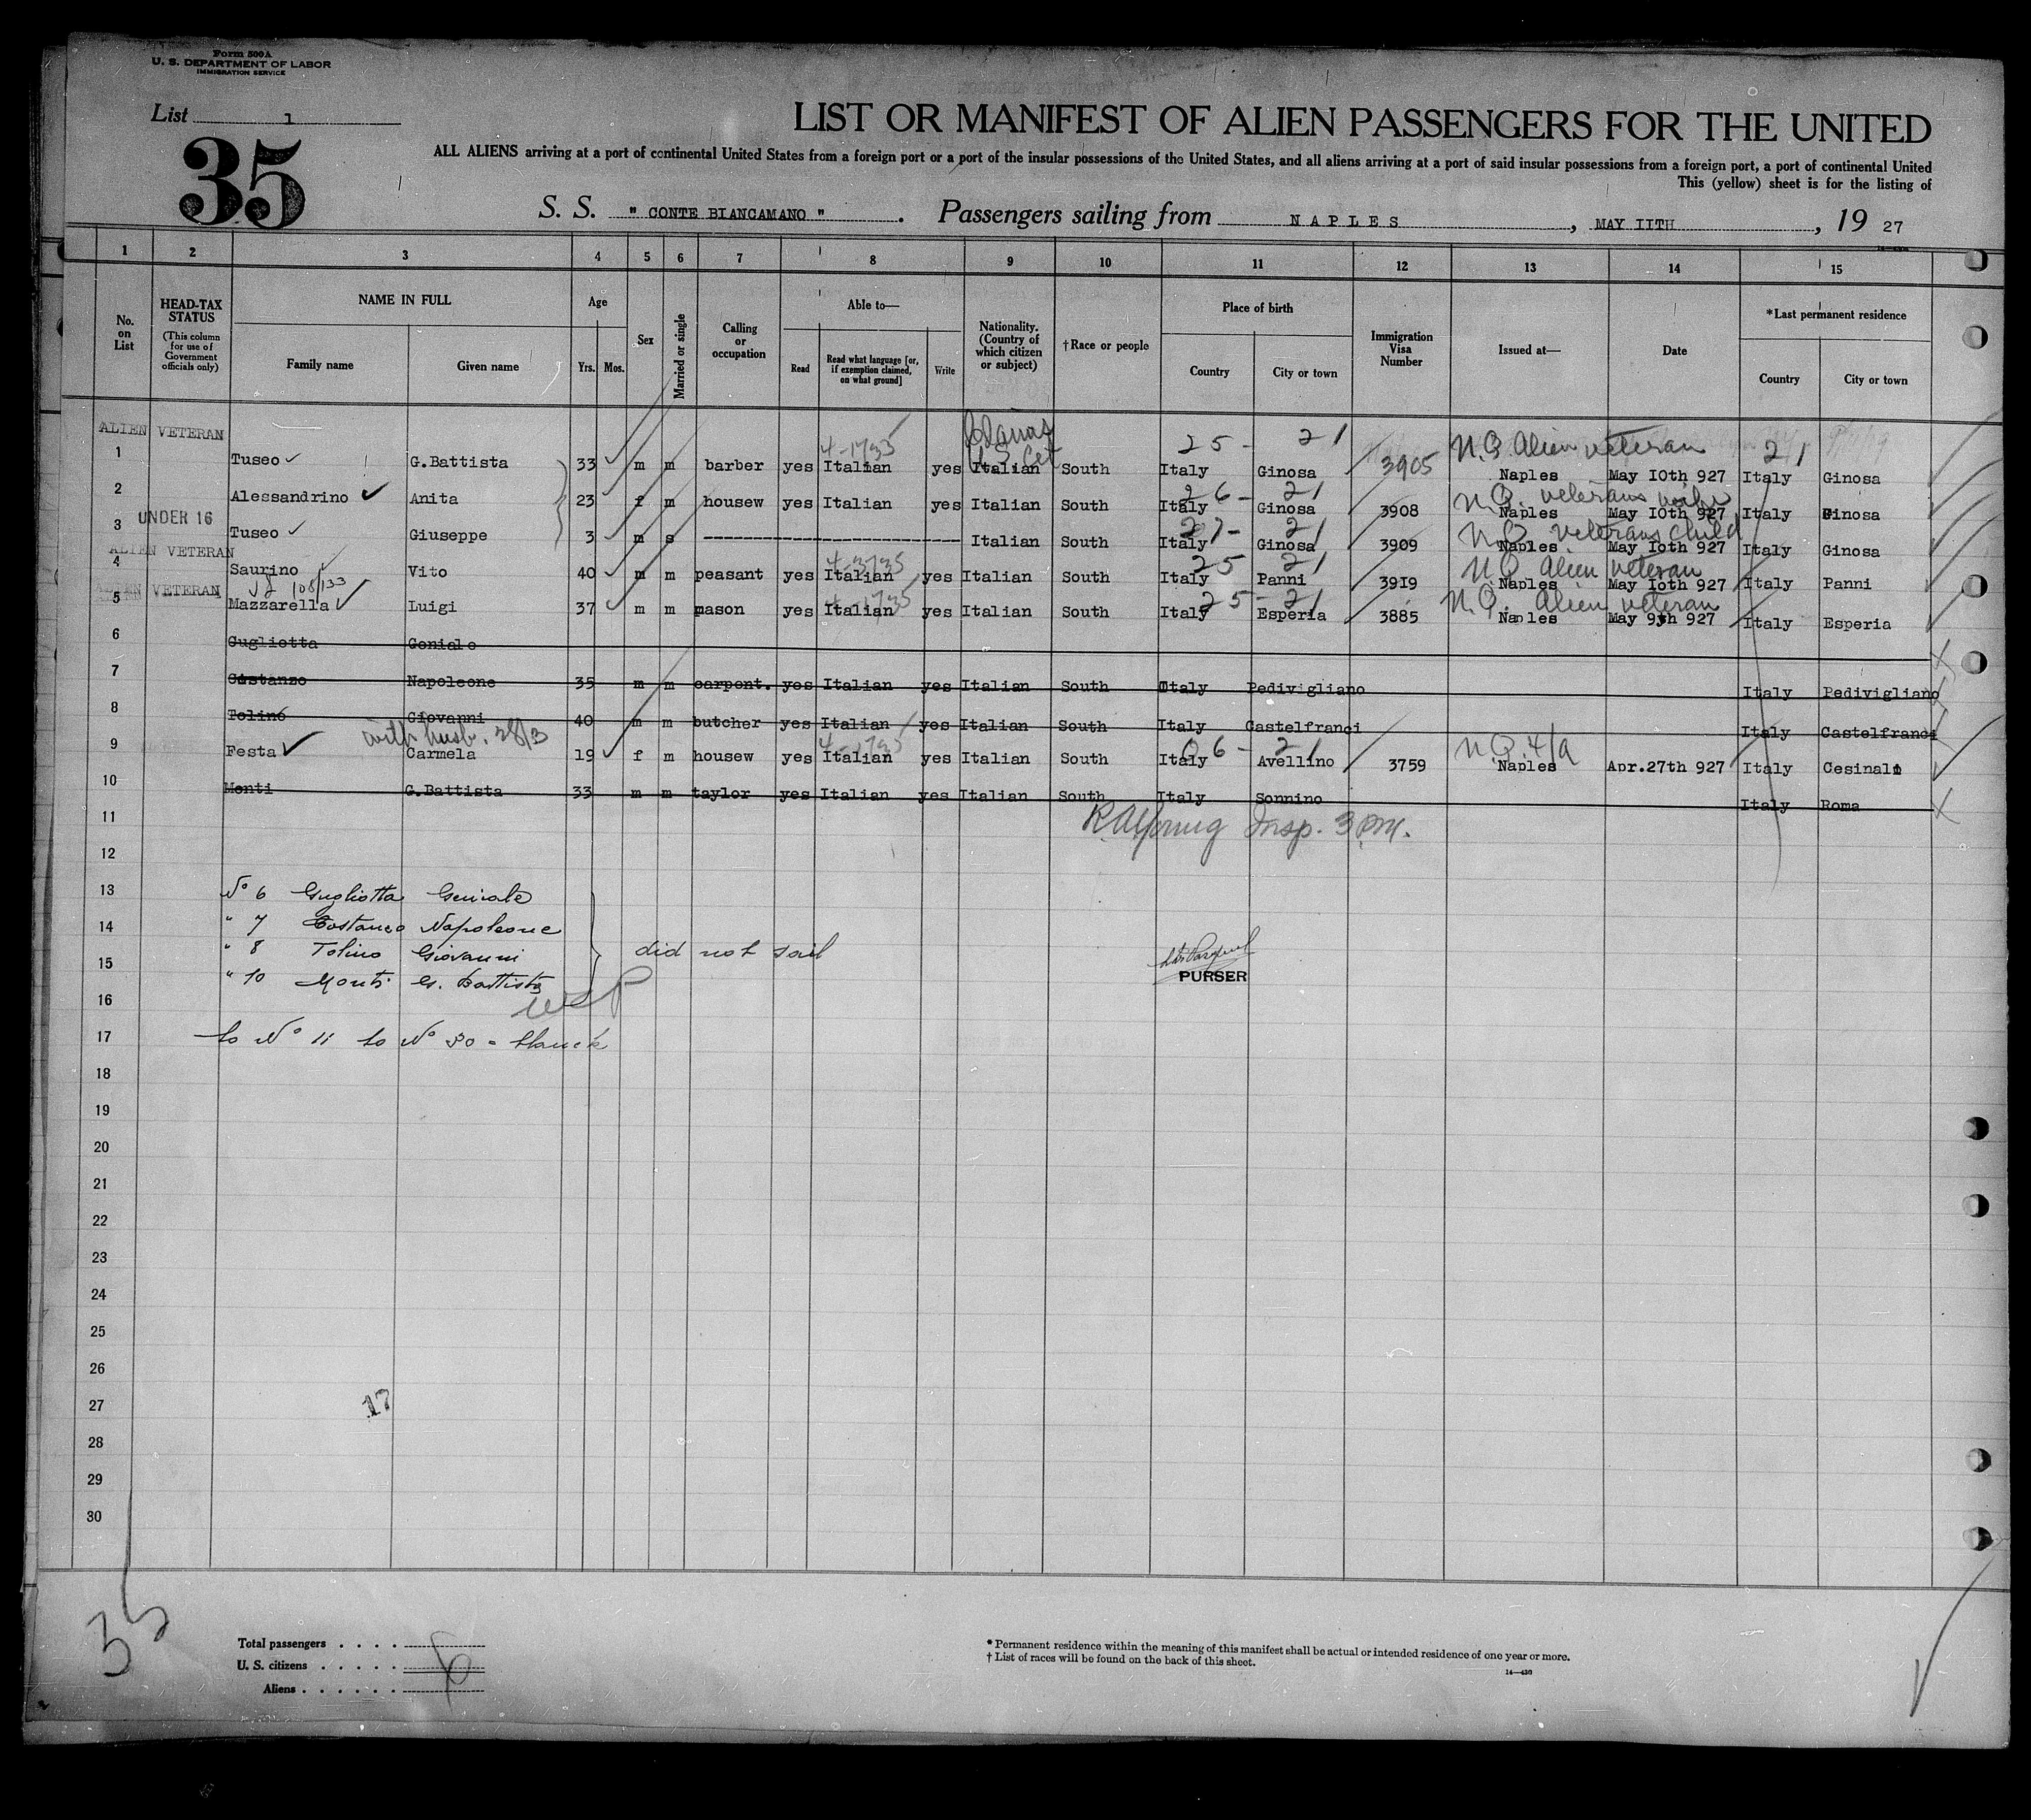 Form 500A
U. S. DEPARTMENT OF LABOR
IMMIGRATION SERVICE
List 1
35
LIST OR MANIFEST OF ALIEN PASSENGERS FOR THE UNITED
ALL ALIENS arriving at a port of continental United States from a foreign port or a port of the insular possessions of the United States, and all aliens arriving at a port of said insular possessions from a foreign port, a port of continental United
This (yellow) sheet is for the listing of
S. S. " CONTE BIANCAMANO ". Passengers sailing from NAPLES, MAY IITH, 19 27
1 2 3 4 5 6 7 8 9 10 11 12 13 14 15
No. on List
HEAD-TAX STATUS
(This column for use of Government officials only)
NAME IN FULL
Family name Given name
Age
Yrs. Mos.
Sex
Married or single
Calling or occupation
Able to—
Read
Read what language [or, if exemption claimed, on what ground]
Write
Nationality. (Country of which citizen or subject)
†Race or people
Place of birth
Country City or town
Immigration Visa Number
Issued at—
Date
*Last permanent residence
Country City or town
ALIEN VETERAN 25 - 21 N.Q. Alien veteran 21
1 Tuseo G.Battista 33 m m barber yes Italian yes Italian South Italy Ginosa 3905 Naples May IOth 927 Italy Ginosa
26 - 21 N.Q. veterans wife
2 Alessandrino Anita 23 f m housew yes Italian yes Italian South Italy Ginosa 3908 Naples May IOth 927 Italy Ginosa
UNDER 16 27 - 21 N.Q. veterans child
3 Tuseo Giuseppe 3 m s Italian South Italy Ginosa 3909 Naples May Ioth 927 Italy Ginosa
ALIEN VETERAN 25 21 N.Q. Alien veteran
4 Saurino Vito 40 m m peasant yes Italian yes Italian South Italy Panni 3919 Naples May Ioth 927 Italy Panni
ALIEN VETERAN 25 - 21 N.Q. Alien veteran
5 Mazzarella Luigi 37 m m mason yes Italian yes Italian South Italy Esperia 3885 Naples May 9th 927 Italy Esperia
6 Gugliotta Geniale
7 Costanzo Napoleone 35 m m carpent. yes Italian yes Italian South Italy Pedivigliano Italy Pedivigliano
8 Tolino Giovanni 40 m m butcher yes Italian yes Italian South Italy Castelfranci Italy Castelfranci
with husb. 28/3 06 - 21 N.Q. 4/a
9 Festa Carmela 19 f m housew yes Italian yes Italian South Italy Avellino 3759 Naples Apr.27th 927 Italy Cesinali
10 Monti G.Battista 33 m m taylor yes Italian yes Italian South Italy Sonnino Italy Roma
11 R.A. Young Insp. 3 P.M.
12
13 No 6 Gugliotta Geniale
14 " 7 Costanzo Napoleone
" 8 Tolino Giovanni did not sail
15 " 10 Monti G. Battista
PURSER
16
17 to No 11 to No 30 = blanck
18
19
20
21
22
23
24
25
26
27 17
28
29
30
35
Total passengers
U. S. citizens
Aliens
* Permanent residence within the meaning of this manifest shall be actual or intended residence of one year or more.
† List of races will be found on the back of this sheet.
14—430